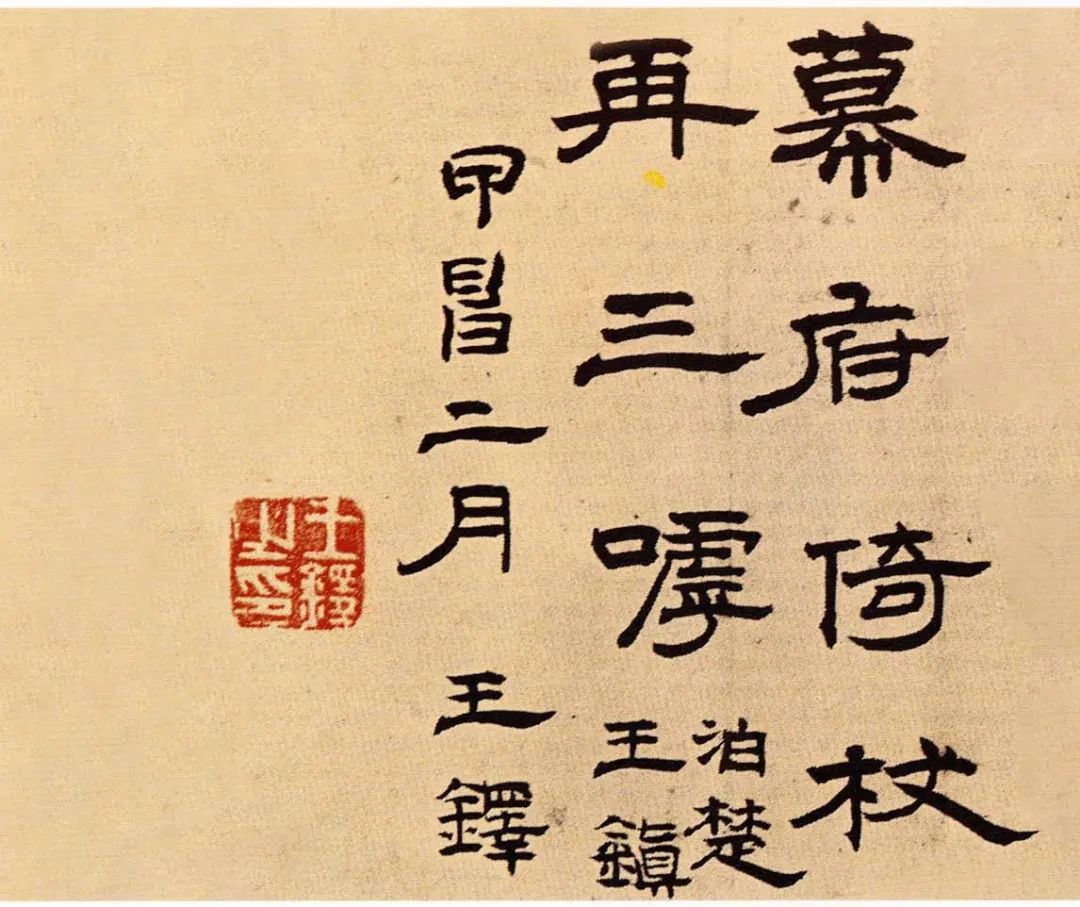 幕府倚杖
再三嘑
泊楚
王鎭
甲申二月 王鐸
王鐸之印